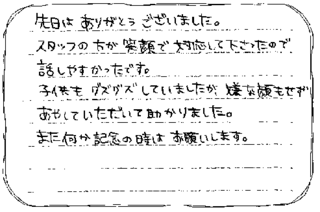 先日は ありがとう ございました。
スタッフの方が 笑顔で 対応して下さったので
話しやすかったです。
子供も グズグズしていましたが、嫌な顔もせず
あやしていただいて助かりました。
また何か記念の時は お願いします。